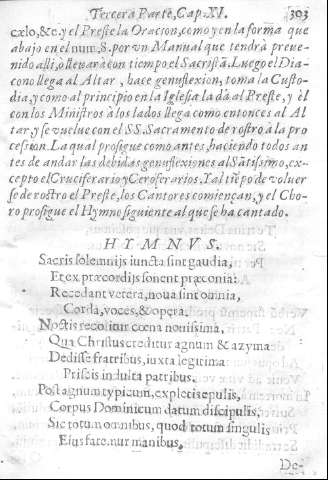 Tercera Parte, Cap. XV. 303
cœlo, &c. y el Preste la Oracion, como y en la forma que
abajo en el num. 8. por vn Manual que tendrà preue-
nido alli, o lleuarà con tiempo el Sacristã. Luego el Dia-
cono llega al Altar, hace genuflexion, toma la Custo-
dia, y como al principio en la Iglesia la dà al Preste, y èl
con los Ministros à los lados llega como entonces al Al
tar, y se vuelue con el SS. Sacramento de rostro à la pro
cession. La qual prosigue como antes, haciendo todos an
tes de andar las debidas genuflexiones al Sãtissimo, ex-
cepto el Cruciferario y Ceroferarios. Y al tiẽpo de voluer
se de rostro el Preste, los Cantores comiençan, y el Cho-
ro prosigue el Hymno siguiente al que se ha cantado.
HYMNVS.
Sacris solemnijs iuncta sint gaudia,
Et ex præcordijs sonent præconia:
Recedant vetera, noua sint omnia,
Corda, voces, & opera.
Noctis recolitur cœna nouissima,
Qua Christus creditur agnum & azyma
Dedisse fratribus, iuxta legitima
Priscis indulta patribus.
Post agnum typicum, expletis epulis,
Corpus Dominicum datum discipulis,
Sic totum omnibus, quod totum singulis
Eius fatemur manibus.
De-